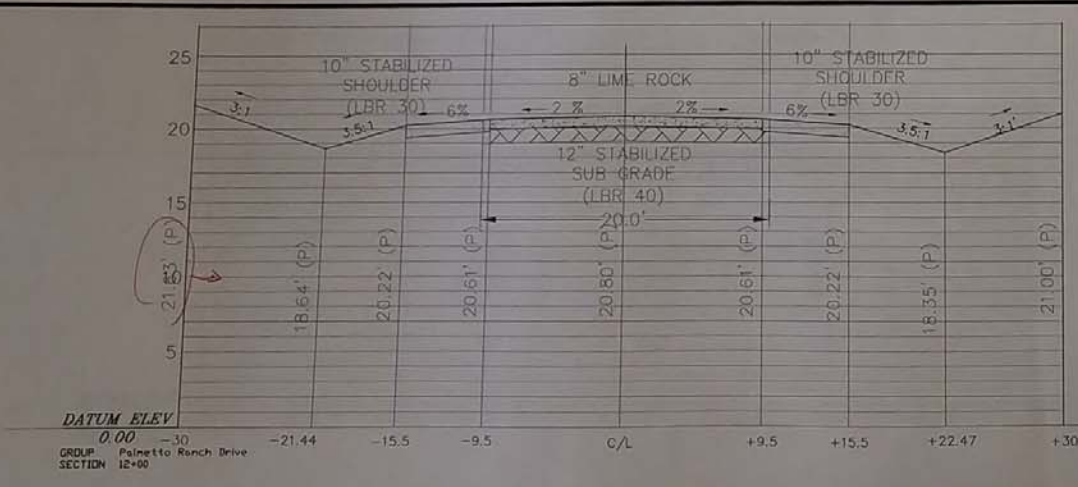 25
20
15
10
5
10" STABILIZED
SHOULDER
(LBR 30)
8" LIME ROCK
10" STABILIZED
SHOULDER
(LBR 30)
3:1
3.5:1
6%
2 %
2%
6%
3.5:1
3:1
12" STABILIZED
SUB GRADE
(LBR 40)
20.0'
(P)
18.64' (P)
20.22' (P)
20.61' (P)
20.80' (P)
20.61' (P)
20.22' (P)
18.35' (P)
21.00' (P)
DATUM ELEV
0.00
-30
-21.44
-15.5
-9.5
C/L
+9.5
+15.5
+22.47
+30
GROUP Palmetto Ranch Drive
SECTION 12+00